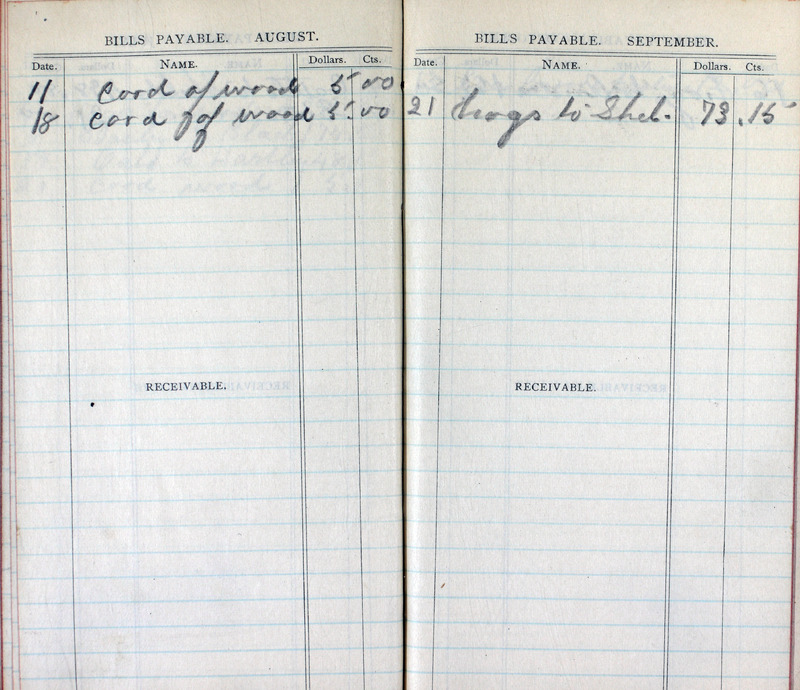 BILLS PAYABLE. AUGUST.
Date. NAME. Dollars. Cts.
11 Cord of wood 5 00
18 Cord of wood 5.00
RECEIVABLE.
BILLS PAYABLE. SEPTEMBER.
Date. NAME. Dollars. Cts.
21 hogs to Shel. 73.15
RECEIVABLE.